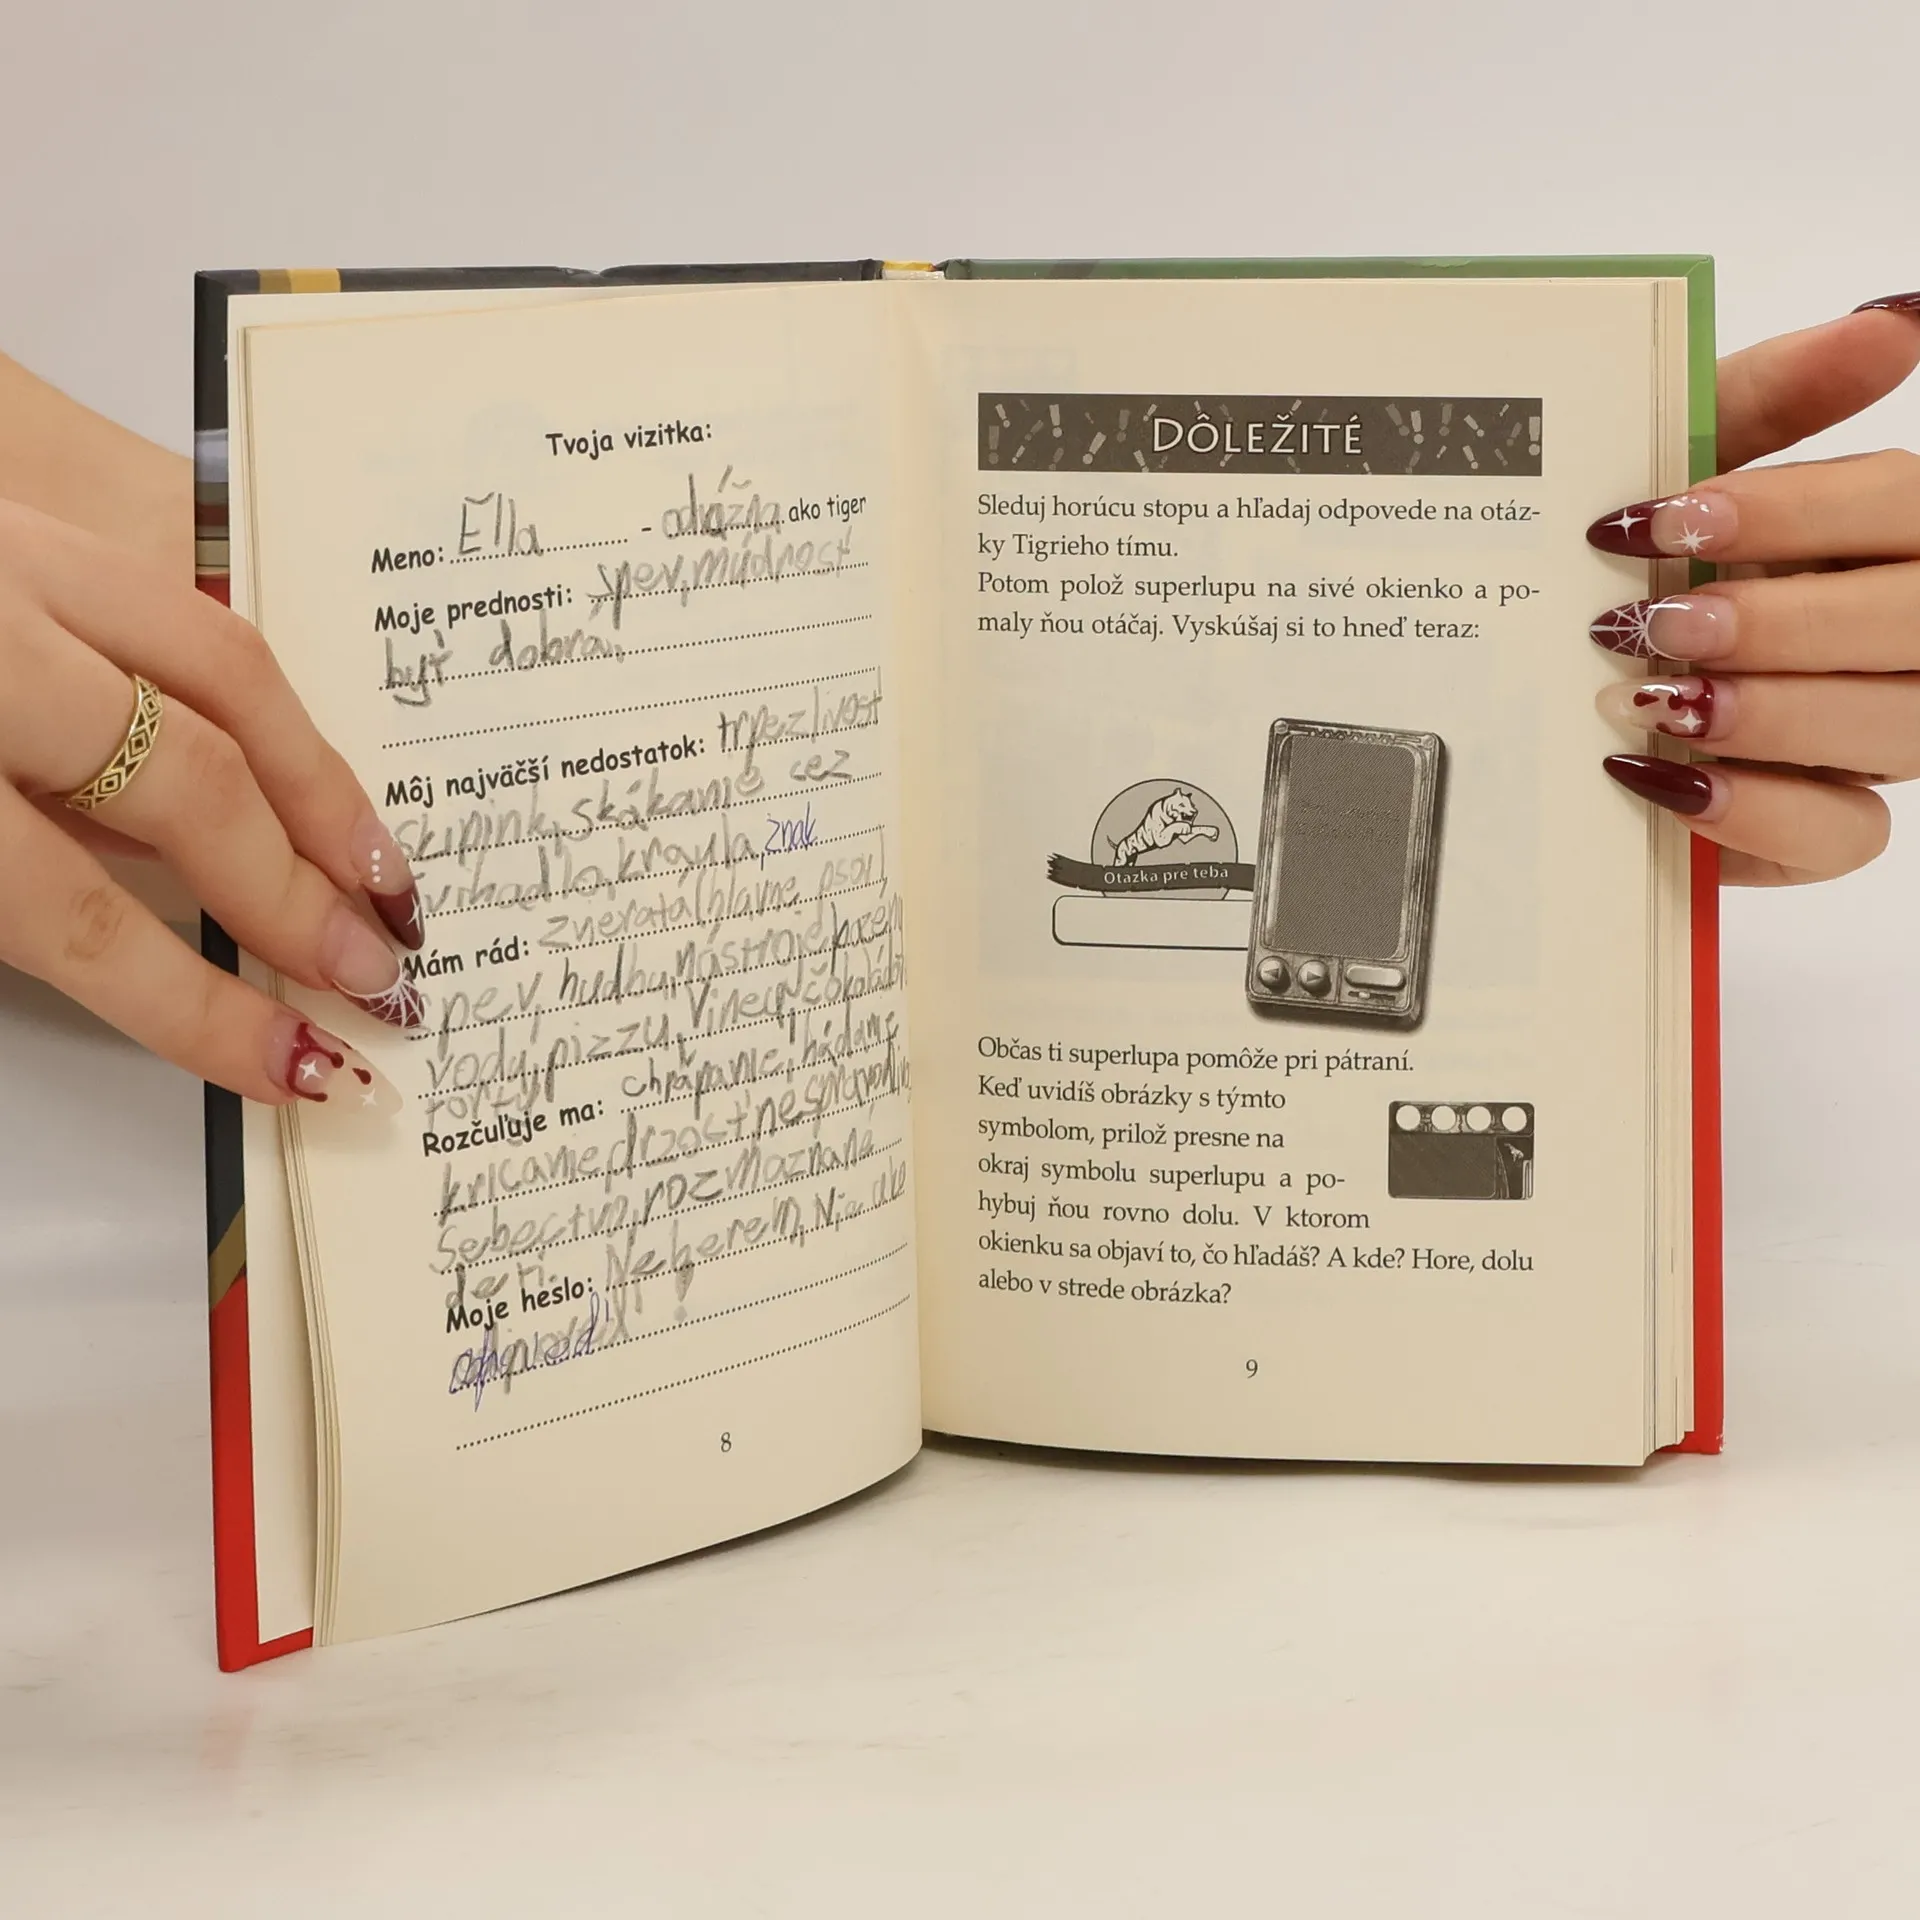 Tvoja vizitka:
Meno: Ella - odvážna ako tiger
Moje prednosti: spev, múdrosť
byť dobrá,
Môj najväčší nedostatok: trpezlivosť
skipink, skákanie cez
švihadlo, kraula, znak
Mám rád: zvieratá (hlavne psov)
spev, hudbu, nástroje
vodu, pizzu,
torty,
Rozčuľuje ma: chrápanie, hádanie
kričanie, drzosť,
sebectvo, rozmaznané
deti.
Moje heslo: Neberem, Nie ako
odpoveď!
8
DÔLEŽITÉ
Sleduj horúcu stopu a hľadaj odpovede na otáz-
ky Tigrieho tímu.
Potom polož superlupu na sivé okienko a po-
maly ňou otáčaj. Vyskúšaj si to hneď teraz:
Otázka pre teba
Občas ti superlupa pomôže pri pátraní.
Keď uvidíš obrázky s týmto
symbolom, prilož presne na
okraj symbolu superlupu a po-
hybuj ňou rovno dolu. V ktorom
okienku sa objaví to, čo hľadáš? A kde? Hore, dolu
alebo v strede obrázka?
9